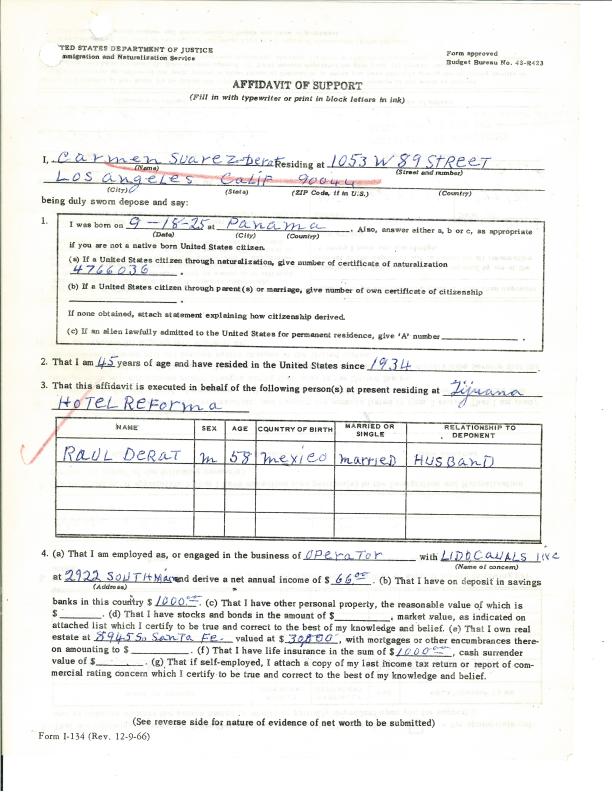 TED STATES DEPARTMENT OF JUSTICE
mmigration and Naturalization Service
Form approved
Budget Bureau No. 43-R423
AFFIDAVIT OF SUPPORT
(Fill in with typewriter or print in block letters in ink)
I, Carmen Suarez-Derat Residing at 1053 W 89 STREET
(Name) (Street and number)
LOS Angeles Calif 90044
(City) (State) (ZIP Code, if in U.S.) (Country)
being duly sworn depose and say:
1. I was born on 9-18-25 at Panama. Also, answer either a, b or c, as appropriate
(Date) (City) (Country)
if you are not a native born United States citizen.
(a) If a United States citizen through naturalization, give number of certificate of naturalization
4766036.
(b) If a United States citizen through parent(s) or marriage, give number of own certificate of citizenship
.
If none obtained, attach statement explaining how citizenship derived.
(c) If an alien lawfully admitted to the United States for permanent residence, give 'A' number.
2. That I am 45 years of age and have resided in the United States since 1934.
3. That this affidavit is executed in behalf of the following person(s) at present residing at Tijuana
HOTEL REFORma
NAME SEX AGE COUNTRY OF BIRTH MARRIED OR SINGLE RELATIONSHIP TO DEPONENT
RAUL DERAT m 58 mexico married HUSBAND
4. (a) That I am employed as, or engaged in the business of OPerator with
(Name of concern)
at 2922 SOUTH and derive a net annual income of $ 66.00. (b) That I have on deposit in savings
(Address)
banks in this country $ 1000.00. (c) That I have other personal property, the reasonable value of which is
$. (d) That I have stocks and bonds in the amount of $, market value, as indicated on
attached list which I certify to be true and correct to the best of my knowledge and belief. (e) That I own real
estate at Santa Fe valued at $, with mortgages or other encumbrances there-
on amounting to $. (f) That I have life insurance in the sum of $ 1000.00, cash surrender
value of $. (g) That if self-employed, I attach a copy of my last income tax return or report of com-
mercial rating concern which I certify to be true and correct to the best of my knowledge and belief.
(See reverse side for nature of evidence of net worth to be submitted)
Form I-134 (Rev. 12-9-66)